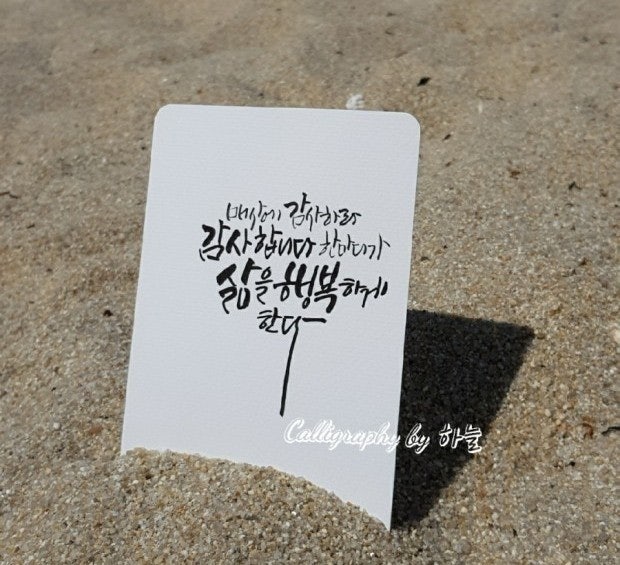 매사에 감사하라
감사합니다 한마디가
삶을 행복하게
한다
Calligraphy by 하늘